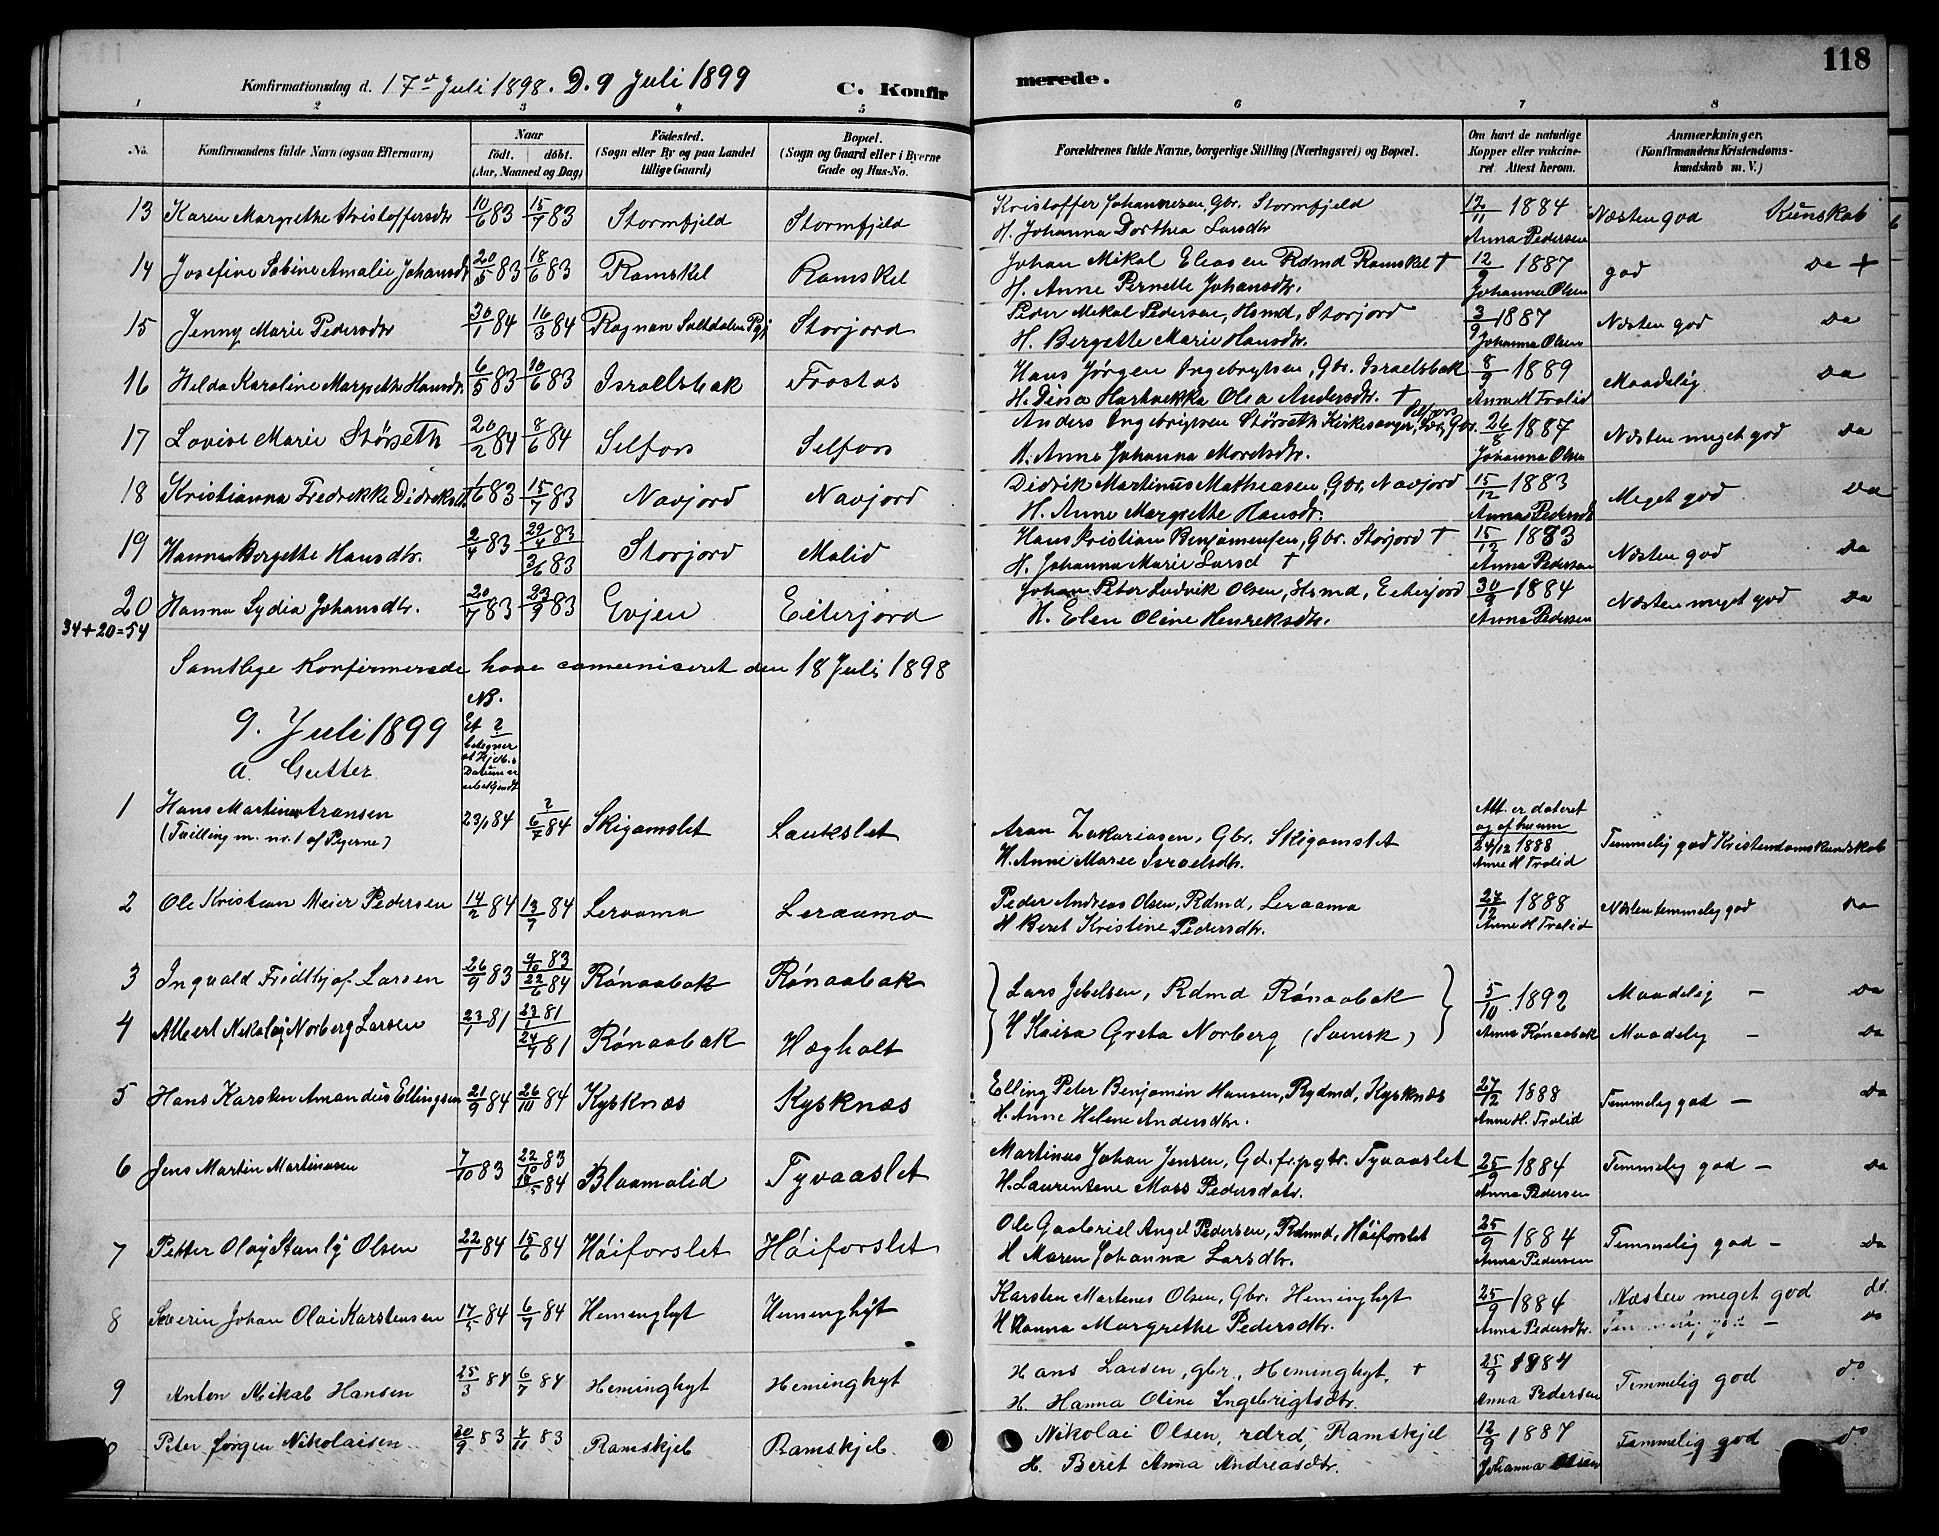 118
Konfirmationsdag d. 17de Juli 1898. D. 9 Juli 1899 C. Konfirmerede.
1 2 3 4 5 6 7 8
No. Konfirmandens fulde Navn (ogsaa Efternavn) Naar født. døbt. (Aar, Maaned og Dag) Fødested. (Sogn eller By og paa Landet tillige Gaard) Bopæl. (Sogn og Gaard eller i Byerne Gade og Hus-No. Forældrenes fulde Navne, borgerlige Stilling (Næringsvei) og Bopæl. Om havt de naturlige Kopper eller vakcineret. Attest herom. Anmærkninger. (Konfirmandens Kristendomskundskab m. V.)
13 Karen Margrethe Kristoffersdtr 10/6 83 15/7 83 Stormfjeld Stormfjeld Kristoffer Johannesen Gbr. Stormfjeld 12/11 1884 Næsten god Kunskab
H. Johanna Dorthea Larsdtr Anna Pedersen
14 Josefine Sabine Amalie Johansdtr 20/5 83 18/6 83 Ramskel Ramskel Johan Mikal Eliasen Rdmd Ramskel † 12/9 1887 god Do +
H. Anne Pernelle Johansdtr. Johanna Olsen
15 Jenny Marie Pedersdtr 30/1 84 16/3 84 Rognan Saltdalen Pgj Storjord Peder Mikal Pedersen, Hsmd, Storjord 3/9 1887 Næsten god Do
H. Bergette Marie Hansdtr. Johanna Olsen
16 Helda Karoline Margrethe Hansdtr. 6/5 83 10/6 83 Israelsbak Frostos Hans Jørgen Ingebrgtsen, Gbr. Israelsbak 8/9 1889 Maadelig Do
H. Dina Hartvekka Olsa Andersdtr. † Anne H Trolid
17 Lovise Marie Størseth 20/2 84 8/6 84 Selfors Selfors Anders Ingebrigtsen Størseth Kirkesanger, Gbr. Selfors 26/8 1887 Næsten meget god Do
H. Anne Johanna Mordtsdtr. Johanna Olsen
18 Kristianna Fredrekke Didreksdtr 1/6 83 15/7 83 Navjord Navjord Didrik Martinus Mathiasen, Gbr, Navjord 15/12 1883 Meget god Do
H. Anne Margrethe Hansdr. Anna Pedersdt
19 Hanna Bergette Hansdtr. 2/4 83 29/4 83 3/6 83 Storjord Malid Hans Kristian Benjamensen, Gbr. Storjord † 15/12 1883 Næsten god Do
H. Johanna Marie Larsd † Anna Pedersen
20 Hanna Lydia Johansdtr. 20/7 83 23/9 83 Evjen Eiterjord Johan Peter Ludvik Olsen, Hsmd, Eiterjord 30/9 1884 Næsten meget god Do
34+20=54 H. Elen Oline Henreksdtr. Anna Pedersen
Samtlige Konfirmerede have comuniseret den 18 Juli 1898
9. Juli 1899
a. Gutter
NB. Et 2 betegner at Hjdb.s Datum er ubekjendt
1 Hans Martinus Aransen 23/1 84 2 6/7 84 Skigamslet Laukslet Aron Zakariasen, Gbr. Skigamslet Att. er dateret 24/12 1888 Temmelig god Kristendomskundskab
(Tvilling m. nr. 1 af Pigerne) H. Anne Marie Israelsdtr. Anne H Trolid
2 Ole Kristian Meier Pedersen 14/2 84 13/7 84 Leraamo Leraamo Peder Andreas Olsen, Rdmd, Leraamo 27/12 1888 Næsten temmelig god Do
H Beret Kristine Pedersdtr. Anne H Trolid
3 Ingvald Fridthjof Larsen 26/9 83 9/10 83 22/6 84 Rønaabak Rønaabak Lars Jebelsen, Rdmd Rønaabak 5/10 1892 Maadelig - Do
4 Albert Nikolaj Norberg Larsen 23/1 81 23/1 81 24/7 81 Rønaabak Høgholt H Kaisa Greta Norberg (Svensk) Anna Rønaabak Maadelig - Do
5 Hans Karsten Amandus Ellingsen 21/9 84 26/10 84 Kysknæs Kysknæs Elling Peter Benjamin Hansen, Rydmd, Kysknæs 27/12 1888 Temmelig god - Do
H. Anne Helene Andersdtr. Anne H. Trolid
6 Jens Martin Martinusen 7/10 83 22/10 83 18/5 84 Blaamolid Tyvaaslet Martinus Johan Jensen, Gd.f.pgtr. Tyvaaslet 25/9 1884 Temmelig god - Do
H. Laurentene Mass Pedersdatr. Anna Pedersen
7 Petter Olaj Stanly Olsen 22/1 84 15/6 84 Høiforslet Høiforslet Ole Gaabriel Angel Pedersen, Rdmd, Høiforslet 25/9 1884 Temmelig god - Do
H Maren Johanna Larsdtr. Anna Pedersen
8 Severin Johan Olai Karstensen 17/5 84 6/7 84 Heminghyt Heminghyt Karsten Martenes Olsen, Gbr. Heminghyt 25/9 1884 Næsten meget god do.
H Hanna Margrethe Pedersdtr. Anna Pedersdtr. Temmelig god - do
9 Anton Mikal Hansen 25/3 84 6/7 84 Heminghyt Heminghyt Hans Larsen, gbr., Heminghyt, + 25/9 1884 Temmelig god do.
H. Hanna Oline Ingebrigtsdtr. Anna Pedersen
10 Peter Jørgen Nikolaisen 30/9 83 4/11 83 Ramskjel Ramskjel. Nikolai Olsen, rdrd, Ramskjel 12/9 1887 Temmelig god do.
H. Beret Anna Andreasdtr. Johanna Olsen